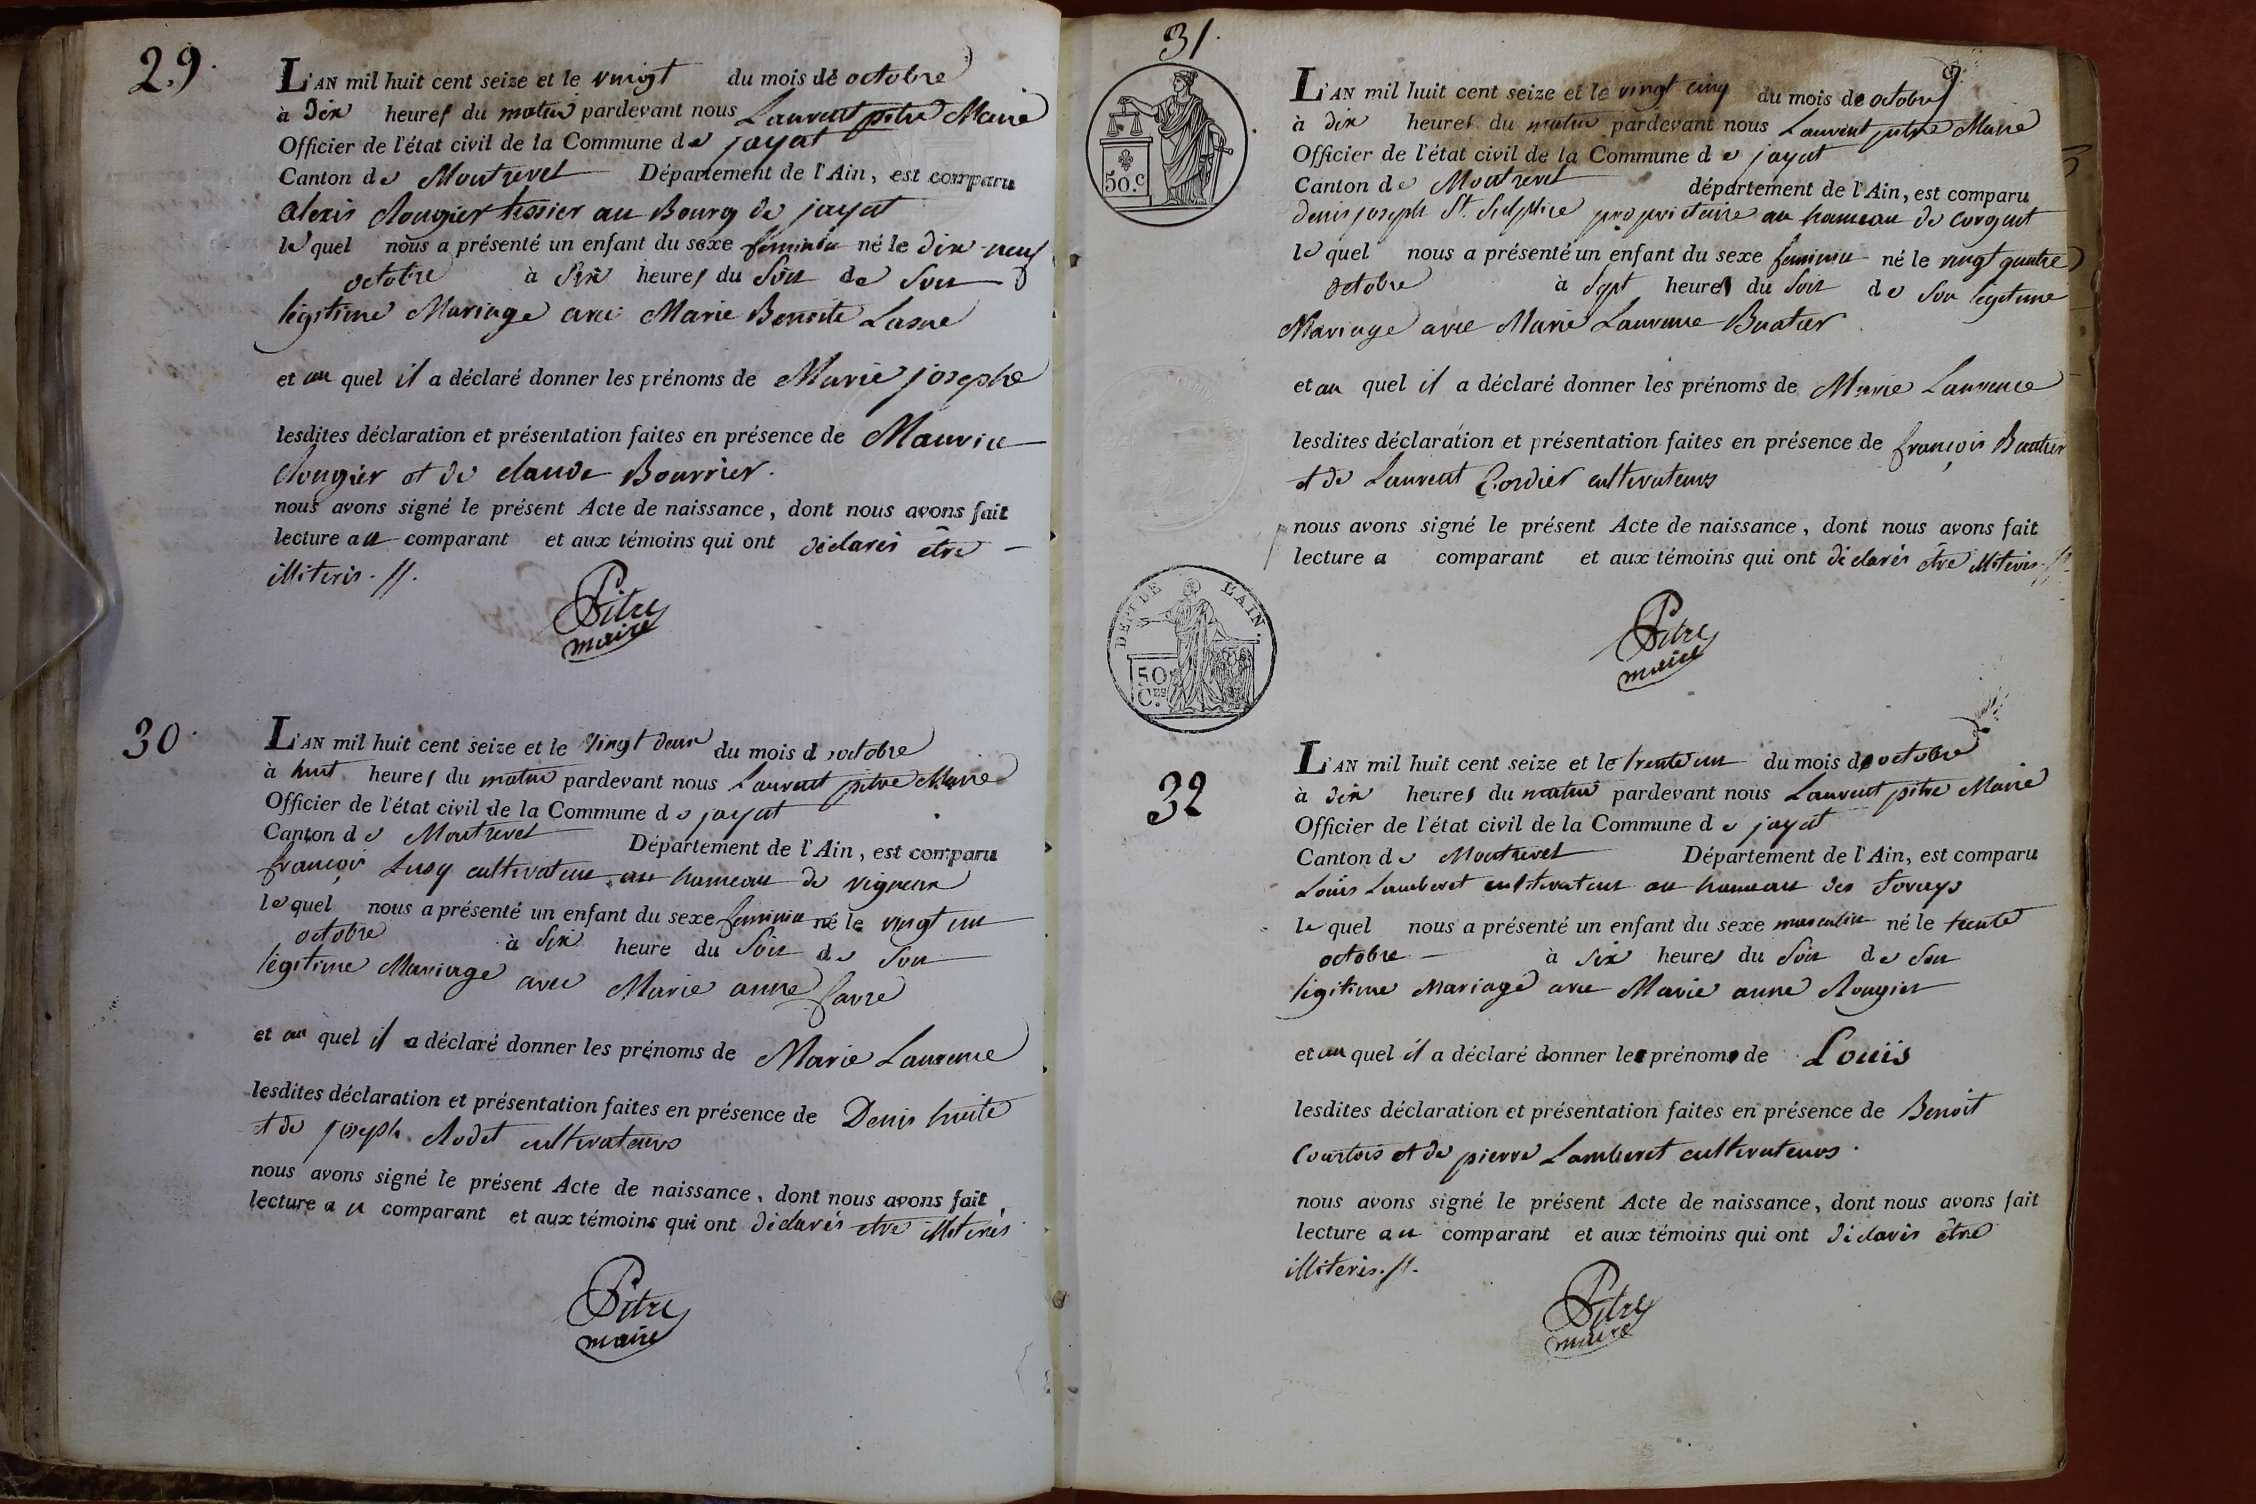 29.
L'AN mil huit cent seize et le vingt du mois de octobre
à dix heures du matin pardevant nous Laurent pitre Maire
Officier de l'état civil de la Commune de jayat
Canton de Montrevel Département de l'Ain, est comparu
alexis Rougier tissier au Bourg de jayat
lequel nous a présenté un enfant du sexe feminin né le dix neuf
octobre à six heures du soir de son
légitime Mariage avec Marie Benoite Lasne
et au quel il a déclaré donner les prénoms de Marie josephe
lesdites déclaration et présentation faites en présence de Maurice
Rougier et de claude Bourrier.
nous avons signé le présent Acte de naissance, dont nous avons fait
lecture au comparant et aux témoins qui ont déclarés être
illiteris.
Pitre
maire
30.
L'AN mil huit cent seize et le vingt deux du mois d octobre
à huit heures du matin pardevant nous Laurent pitre Maire
Officier de l'état civil de la Commune de jayat
Canton de Montrevel Département de l'Ain, est comparu
françois cultivateur au hameau de vigneux
lequel nous a présenté un enfant du sexe feminin né le vingt un
octobre à six heure du soir de son
légitime Mariage avec Marie anne favre
et au quel il a déclaré donner les prénoms de Marie Laurence
lesdites déclaration et présentation faites en présence de Denis huite
et de joseph Rodet cultivateurs
nous avons signé le présent Acte de naissance, dont nous avons fait
lecture au comparant et aux témoins qui ont déclarés etre illiterés
Pitre
maire
31.
50.c
L'AN mil huit cent seize et le vingt cinq du mois de octobre
à dix heures du matin pardevant nous Laurent pitre Maire
Officier de l'état civil de la Commune de jayat
Canton de Montrevel département de l'Ain, est comparu
denis joseph St. Sulpice proprietaire au hameau de Corgent
lequel nous a présenté un enfant du sexe feminin né le vingt quatre
octobre à sept heures du soir de son légitime
Mariage avec Marie Laurence Buatier
et au quel il a déclaré donner les prénoms de Marie Laurence
lesdites déclaration et présentation faites en présence de françois Buatier
et de Laurent Cordier cultivateurs
nous avons signé le présent Acte de naissance, dont nous avons fait
lecture a comparant et aux témoins qui ont déclarés être illiteris
DEPT DE L'AIN.
50 Ces
Pitre
maire
32
L'AN mil huit cent seize et le trente un du mois de octobre
à dix heures du matin pardevant nous Laurent pitre Maire
Officier de l'état civil de la Commune de jayat
Canton de Montrevel Département de l'Ain, est comparu
Louis Lamberet cultivateur au hameau des
lequel nous a présenté un enfant du sexe masculin né le trente
octobre à six heures du soir de son
légitime Mariage avec Marie anne Rougier
et au quel il a déclaré donner les prénoms de Louis
lesdites déclaration et présentation faites en présence de Benoit
Courtois et de pierre Lamberet cultivateurs.
nous avons signé le présent Acte de naissance, dont nous avons fait
lecture au comparant et aux témoins qui ont déclarés être
illiteris.
Pitre
maire